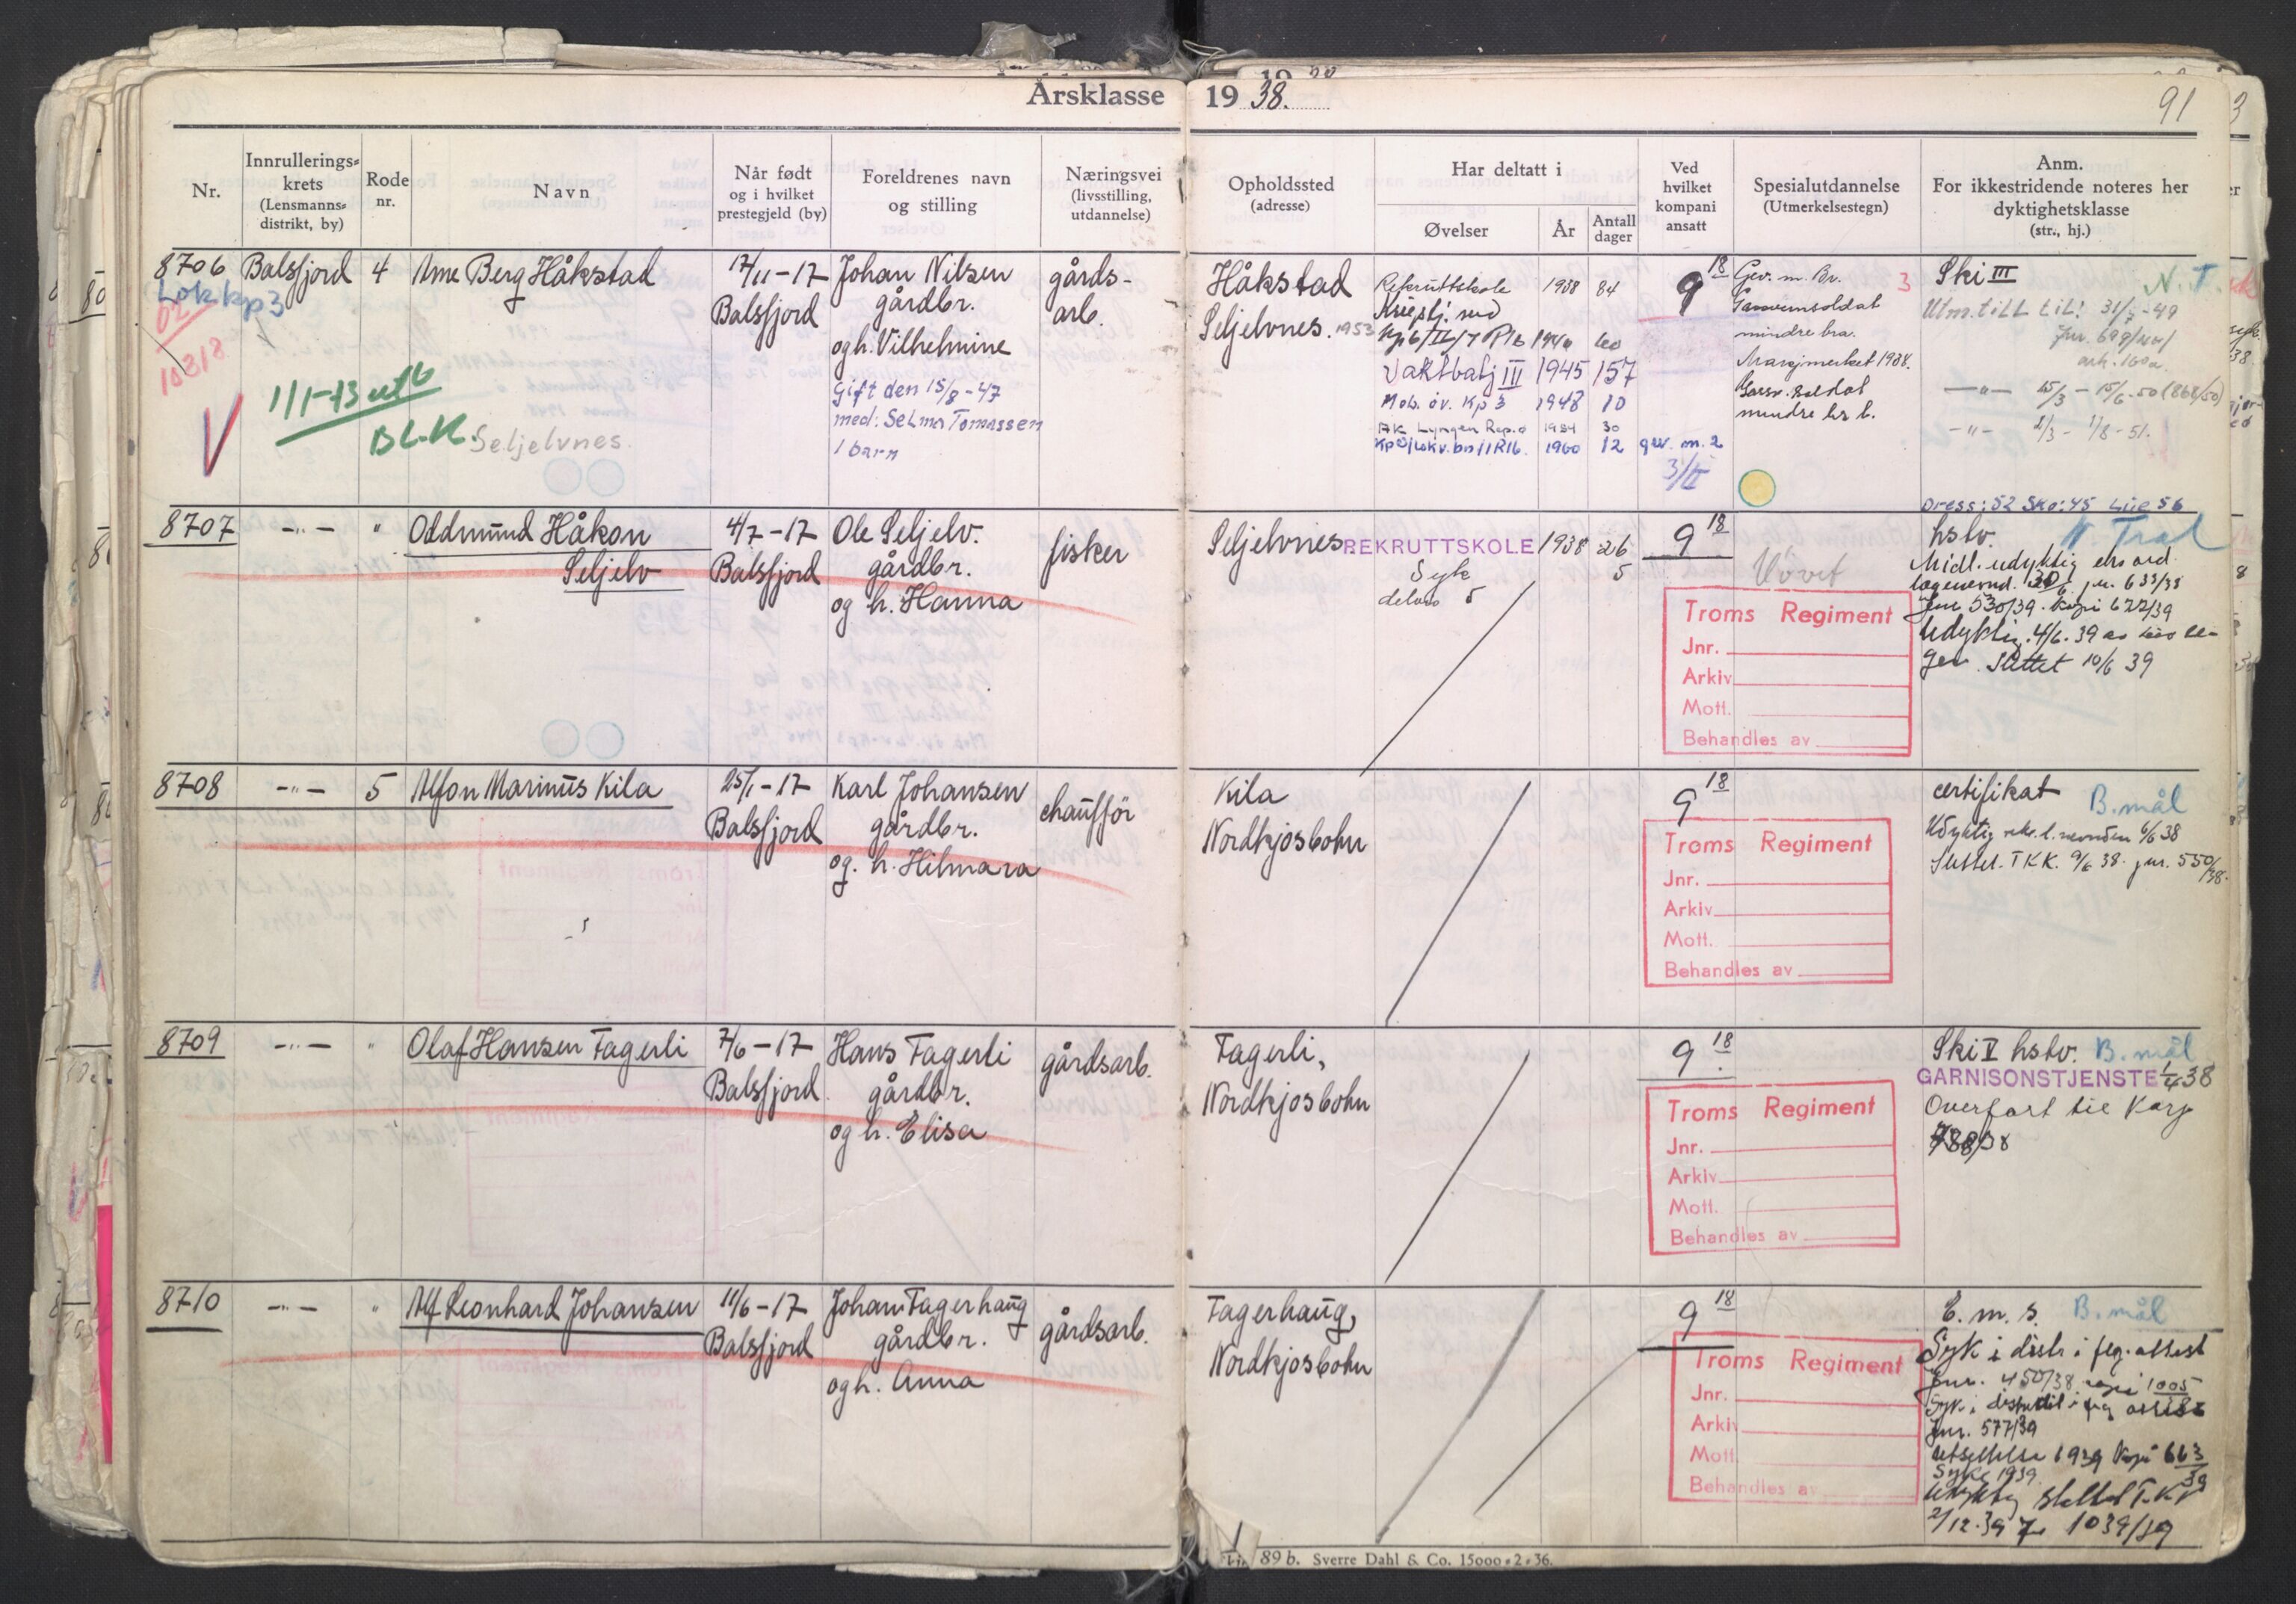 Årsklasse 19 38.
91
Nr.
Innrullerings-
krets
(Lensmanns-
distrikt, by)
Rode
nr.
Navn
Når født
og i hvilket
prestegjeld (by)
Foreldrenes navn
og stilling
Næringsvei
(livsstilling,
utdannelse)
Opholdssted
(adresse)
Har deltatt i
Øvelser
År
Antall
dager
Ved
hvilket
kompani
ansatt
Spesialutdannelse
(Utmerkelsestegn)
Anm.
For ikkestridende noteres her
dyktighetsklasse
(str., hj.)
8706 Balsfjord 4 Arne Berg Håkstad
Lok kp 3
02
10318
1/1-73 utb
BLK.
Seljelvnes.
17/11-17
Balsfjord
Johan Nilsen
gårdbr.
og h. Vilhelmine
Gift den 15/8-47
med: Selma Tomassen
1 barn
gårds-
arb.
Håkstad
Seljelvnes. 1953
Rekruttskole 1938 84
Kp 6/II/ 1940 60
Vaktbatj III 1945 157
Mob. øv. Kp 3 1948 10
AK Lyngen Rep.ø 1954 30
1960 12 gev. m. 2
9 18
3/II
Gev. m. Br. 3
mindre bra.
Marsjmerket 1938.
mindre br b.
Ski III N.T.
Utm. till til: 31/7-49
jnr. 699/
ark. 160a.
—"— 15/3 - 15/6-50 (868/50)
—"— 2/3 - 1/8-51.
Dress: 52 Sko: 45 Lue 56
8707 —"— " Oddmund Håkon
Seljelv
4/7-17
Balsfjord
Ole Seljelv.
gårdbr.
og h. Hanna
fisker
Seljelvnes.
REKRUTTSKOLE 1938 26
Syk 5
9 18
Troms Regiment
Jnr.
Arkiv
Mott.
Behandles av
hstv.
Midl. udyktig
jnr. 633/38
Jnr 530/39. Kopi 677/39
Udyktig. 4/6.39 av
Slettet 10/6 39
8708 —"— 5 Alfon Marinus Kila
25/1-17
Balsfjord
Karl Johansen
gårdbr.
og. h. Hilmara
chauffør
Kila
Nordkjosbohn
9 18
Troms Regiment
Jnr.
Arkiv
Mott.
Behandles av
certifikat B.mål
Udyktig 6/6 38
Slettet. T K K. 9/6 38. jnr. 550/38.
8709 —"— " Olaf Hansen Fagerli
7/6-17
Balsfjord
Hans Fagerli
gårdbr.
og h. Elisa
gårdsarb.
Fagerli,
Nordkjosbohn
9 18
Troms Regiment
Jnr.
Arkiv
Mott.
Behandles av
Ski V hstv. B.mål
GARNISONSTJENSTE 1/4 38
Overført til
788/38
8710 —"— " Alf Leonhard Johansen
11/6-17
Balsfjord
Johan Fagerhaug
gårdbr.
og h. Anna
gårdsarb.
Fagerhaug,
Nordkjosbohn
9 18
Troms Regiment
Jnr.
Arkiv
Mott.
Behandles av
E. m. s. B.mål
Syk i distr. i flg. attest
Jnr. 450/38 kopi 1005
Syk i
Jnr. 577/39
utsettelse 1939 Kopi 663/39
Syk 1939
Udyktig Slettet T.K.K
2/12.39 J. 1039/39
89 b. Sverre Dahl & Co. 15000-2-36.